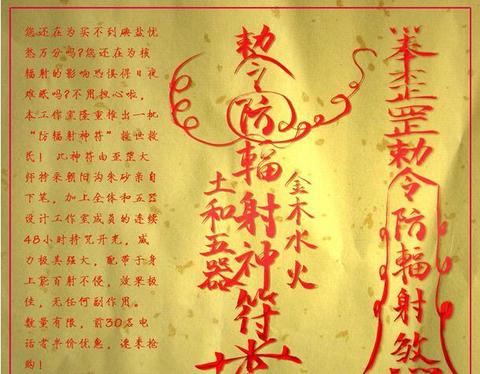 您还在为买不到碘盐忧
愁万分吗?您还在为核
辐射的影响恐惧得日夜
难眠吗?不用担心啦,
本工作室隆重推出一批
“防辐射神符”救世救
民! 此神符由亚罡大
师持来朝阳沟朱砂亲自
下笔,加上全体和五器
设计工作室成员的连续
48小时持咒开光,威
力极其强大,配带于身
上能百射不侵,效果极
佳,无任何副作用。
数量有限,前30名电
话者半价优惠,速来抢
购!
敕令防辐射神符
土和五器
金木水火
罡敕令防辐射